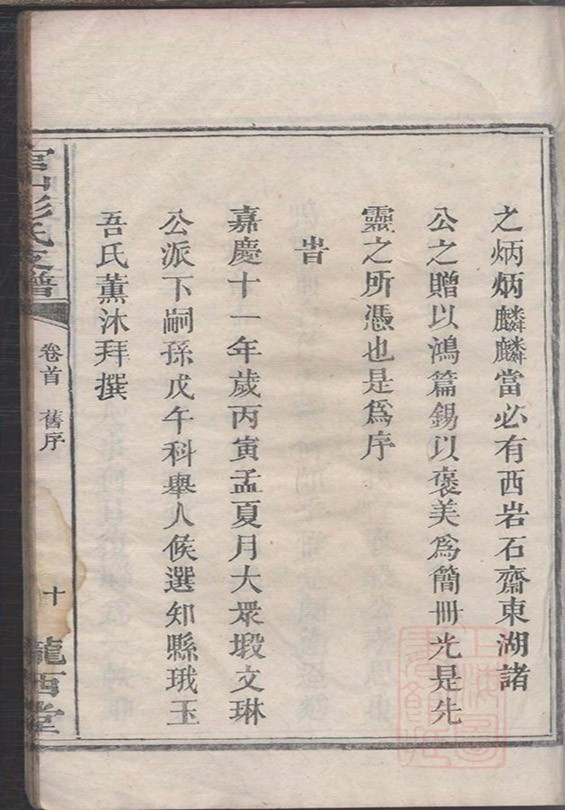 之炳炳麟麟當必有西岩石齋東湖諸
公之贈以鴻篇錫以褒美為簡冊光是先
靈之所憑也是為序
旹
嘉慶十一年歲丙寅孟夏月大眾塅文琳
公派下嗣孫戊午科舉人候選知縣珴玉
吾氏薰沐拜撰
官山彭氏支譜
卷首 舊序
十
隴西堂